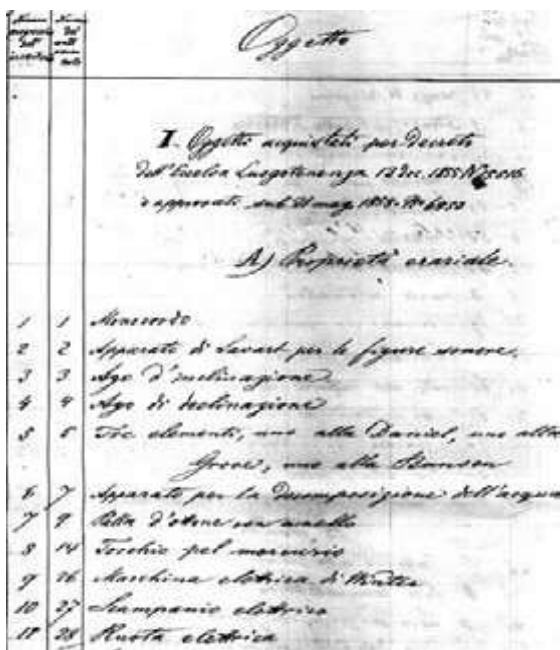 Oggetto
I. Oggetti acquistati per Decreto
dell'Eccelsa Luogotenenza 12 Dec. 1855 N°
e approvati sub 21 mag. 1858 N° 6050
A) Proprietà erariale.
1 1 Monocordo
2 2 Apparato di Savart per le figure sonore.
3 3 Ago d'inclinazione
4 4 Ago di declinazione
5 5 Tre elementi, uno alla Daniel, uno alla
Grove, uno alla Bunsen
6 7 Apparato per la decomposizione dell'acqua
7 9 Palla d'ottone con anello
8 14 Torchio pel mercurio
9 26 Macchina elettrica di Winter
10 27 Scampanio elettrico
11 28 Ruota elettrica